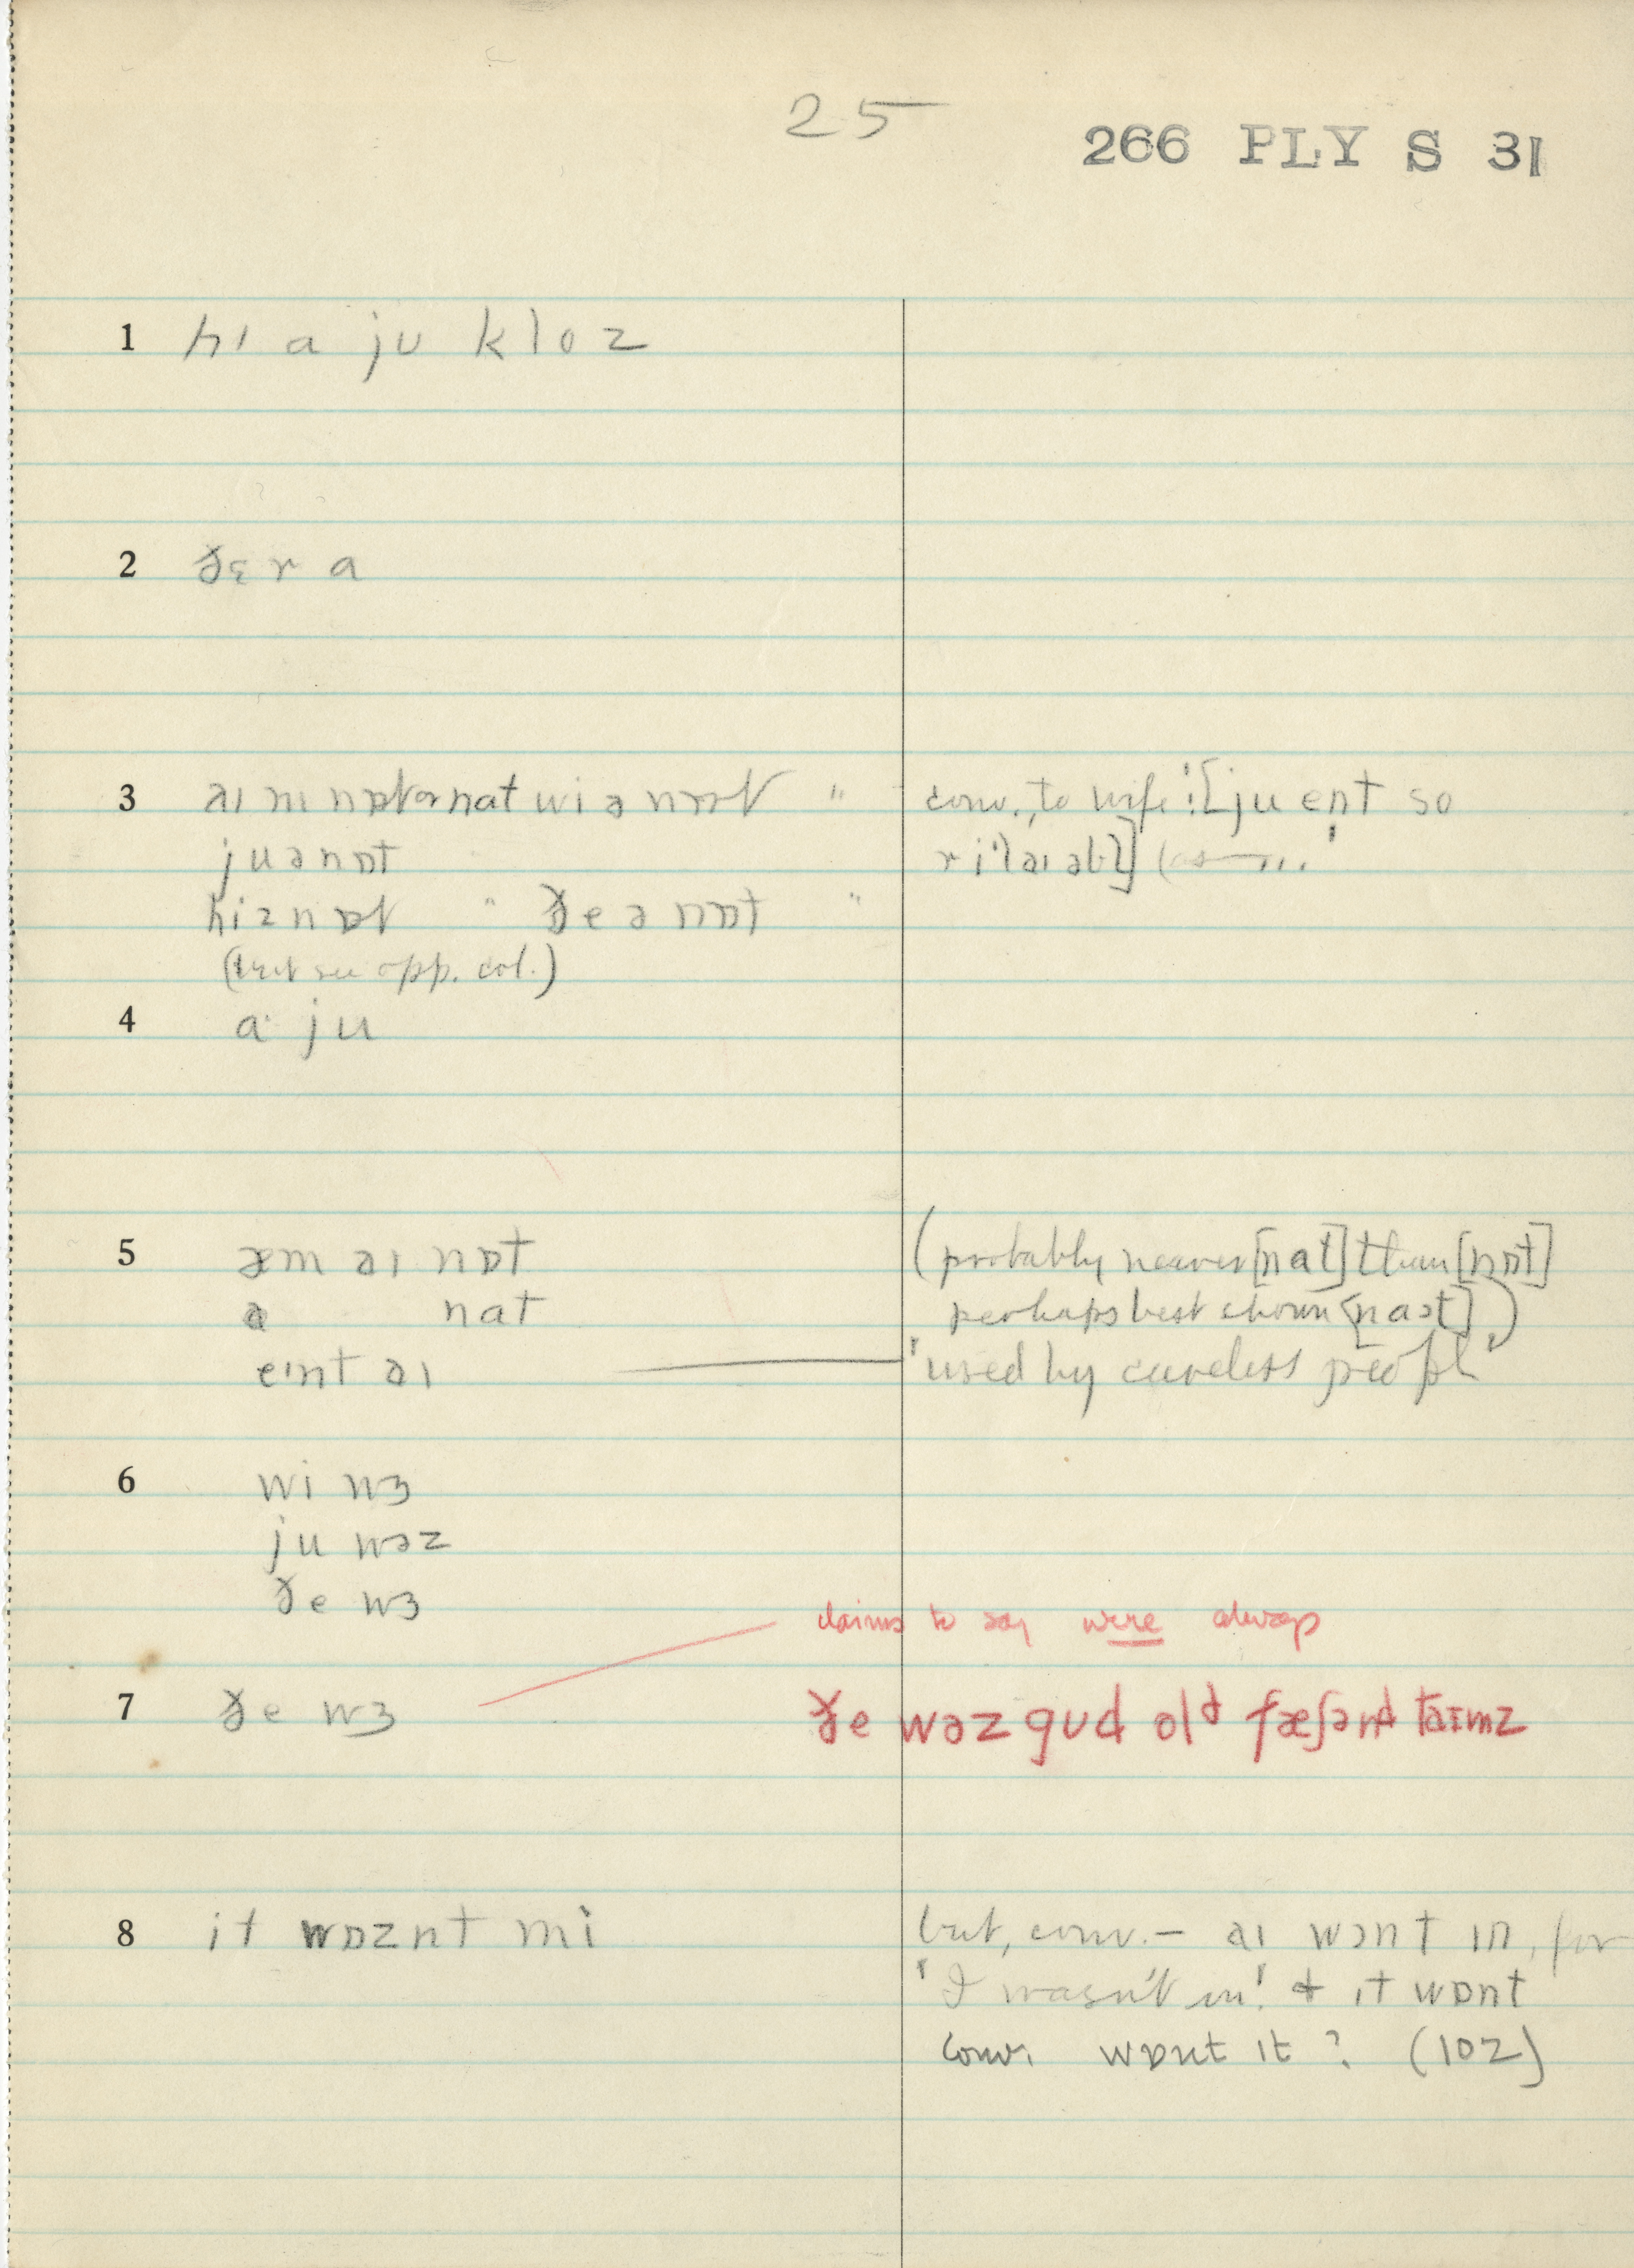 25
266 PLY S 31
1 hɪ a jʊ kloz
2 ðɛr a
3 aɪ m nɒt or nat wi ə nɒt "
conv., to wife: '[ju ent so
ju ə nɒt
hi z nɒt " ðe ə nɒt "
(but see opp. col.)
4 a ju
5 æm aɪ nɒt
(probably nearer [nat] than [nɒt]
a nat
perhaps best shown [naɔt])
eɪnt aɪ
'used by careless people'
6 wi wɜ
ju wəz
ðe wɜ
claims to say were always
7 ðe wɜ
ðe wəz gʊd old fæʃənd taɪmz
8 it wɒznt mi
but, conv. – aɪ wɔnt ɪn, for
'I wasn't in' & ɪt wɒnt
conv. wɒnt ɪt? (102)